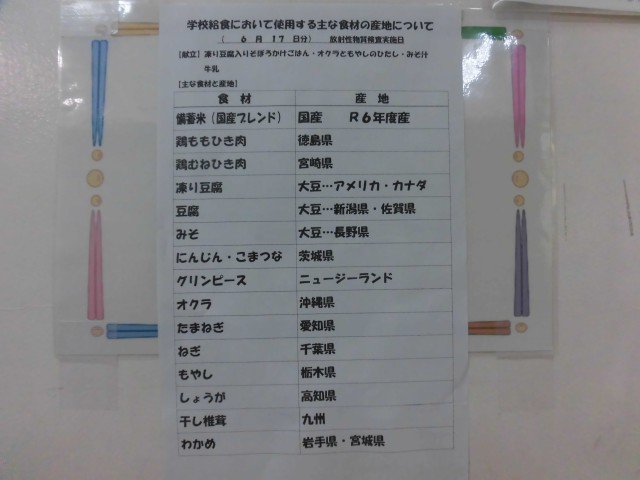 学校給食において使用する主な食材の産地について
( 6 月 17 日分) 放射性物質検査実施日
[献立] 凍り豆腐入りそぼろかけごはん・オクラともやしのひたし・みそ汁
牛乳
[主な食材と産地]
食 材 産 地
備蓄米(国産ブレンド) 国産 R6年度産
鶏ももひき肉 徳島県
鶏むねひき肉 宮崎県
凍り豆腐 大豆…アメリカ・カナダ
豆腐 大豆…新潟県・佐賀県
みそ 大豆…長野県
にんじん・こまつな 茨城県
グリンピース ニュージーランド
オクラ 沖縄県
たまねぎ 愛知県
ねぎ 千葉県
もやし 栃木県
しょうが 高知県
干し椎茸 九州
わかめ 岩手県・宮城県